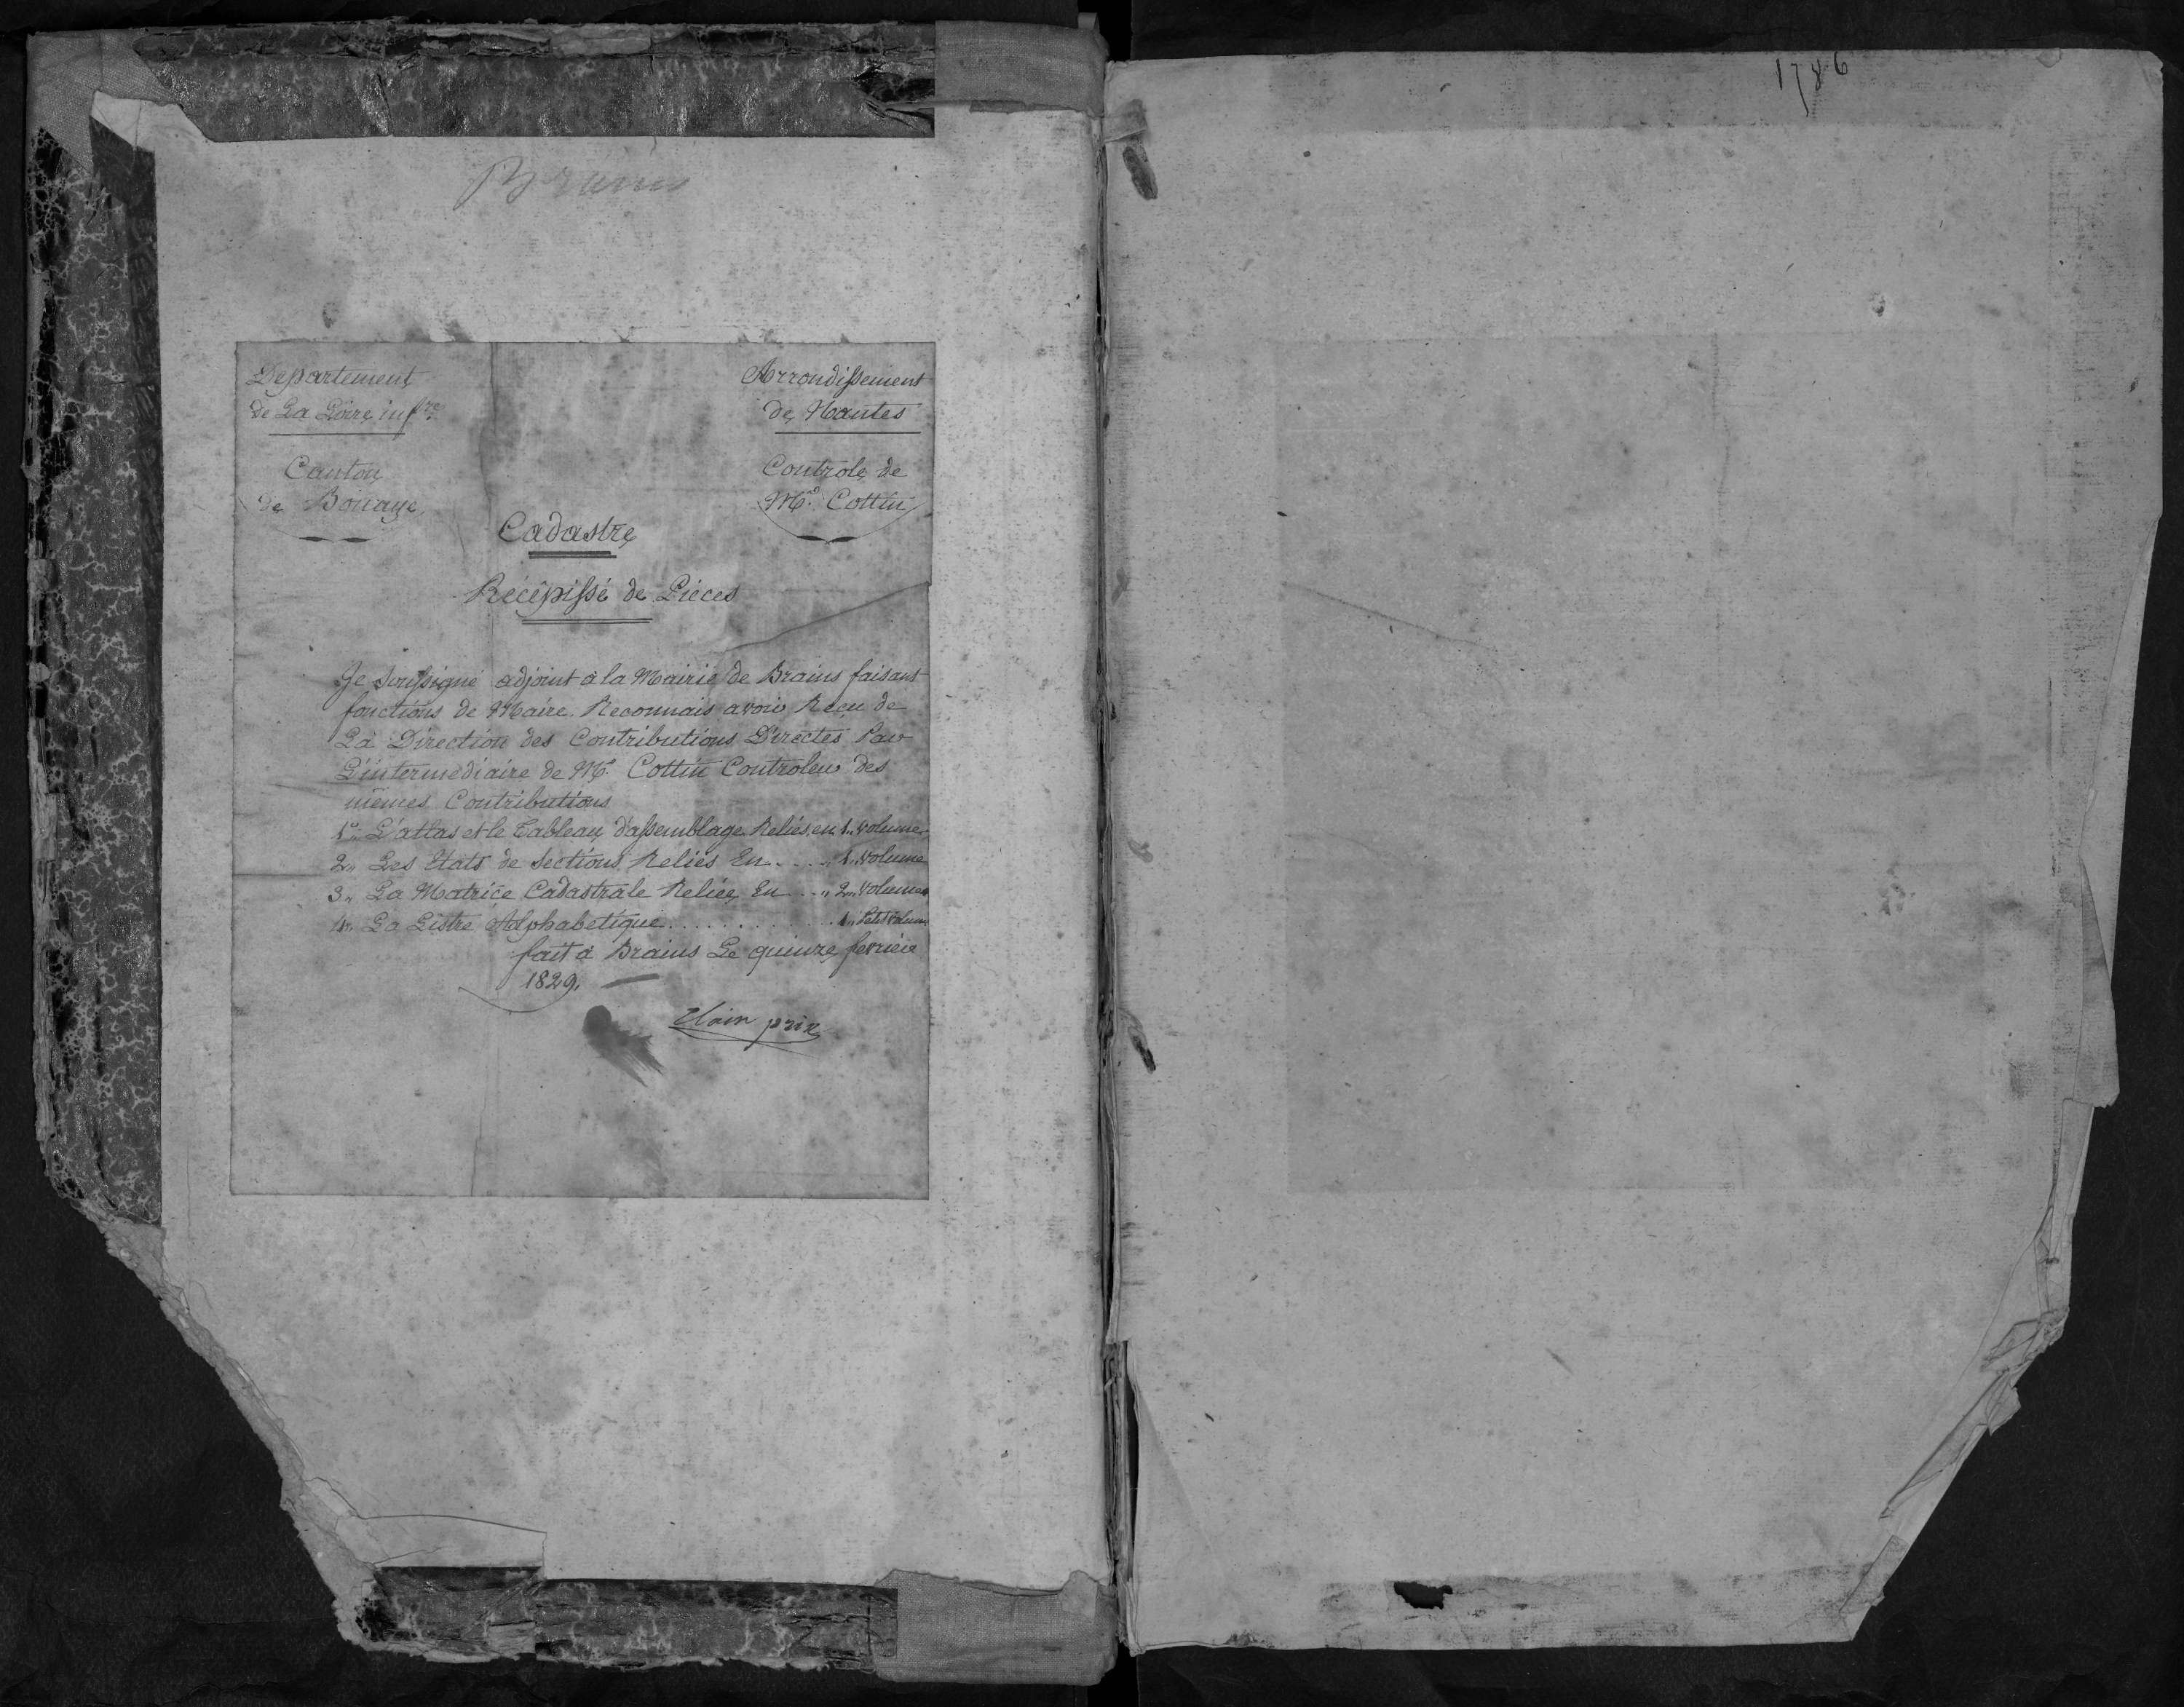 Brains
Departement
de La Loire infre
Canton
de Bouaye
Arrondissement
de Nantes
Controle de
Mr. Cottin
Cadastre
Récépissé de Pieces
Je soussigné adjoint a la Mairie de Brains faisant
fonctions de Maire. Reconnais avoir Reçu de
La Direction des Contributions Directes Par
L'intermediaire de Mr. Cottin Controleur des
mêmes Contributions
1.. L'atlas et le Tableau d'assemblage Reliés en 1.. volume
2.. Les Etats de Sections Reliés En . . . . 1.. volume
3.. La Matrice Cadastrale Reliée En . . .. 2.. volumes
4.. La Listre Alphabetique . . . . . . . . . 1.. Petit volume
fait a Brains Le quinze fevrier
1829.
prin
1786